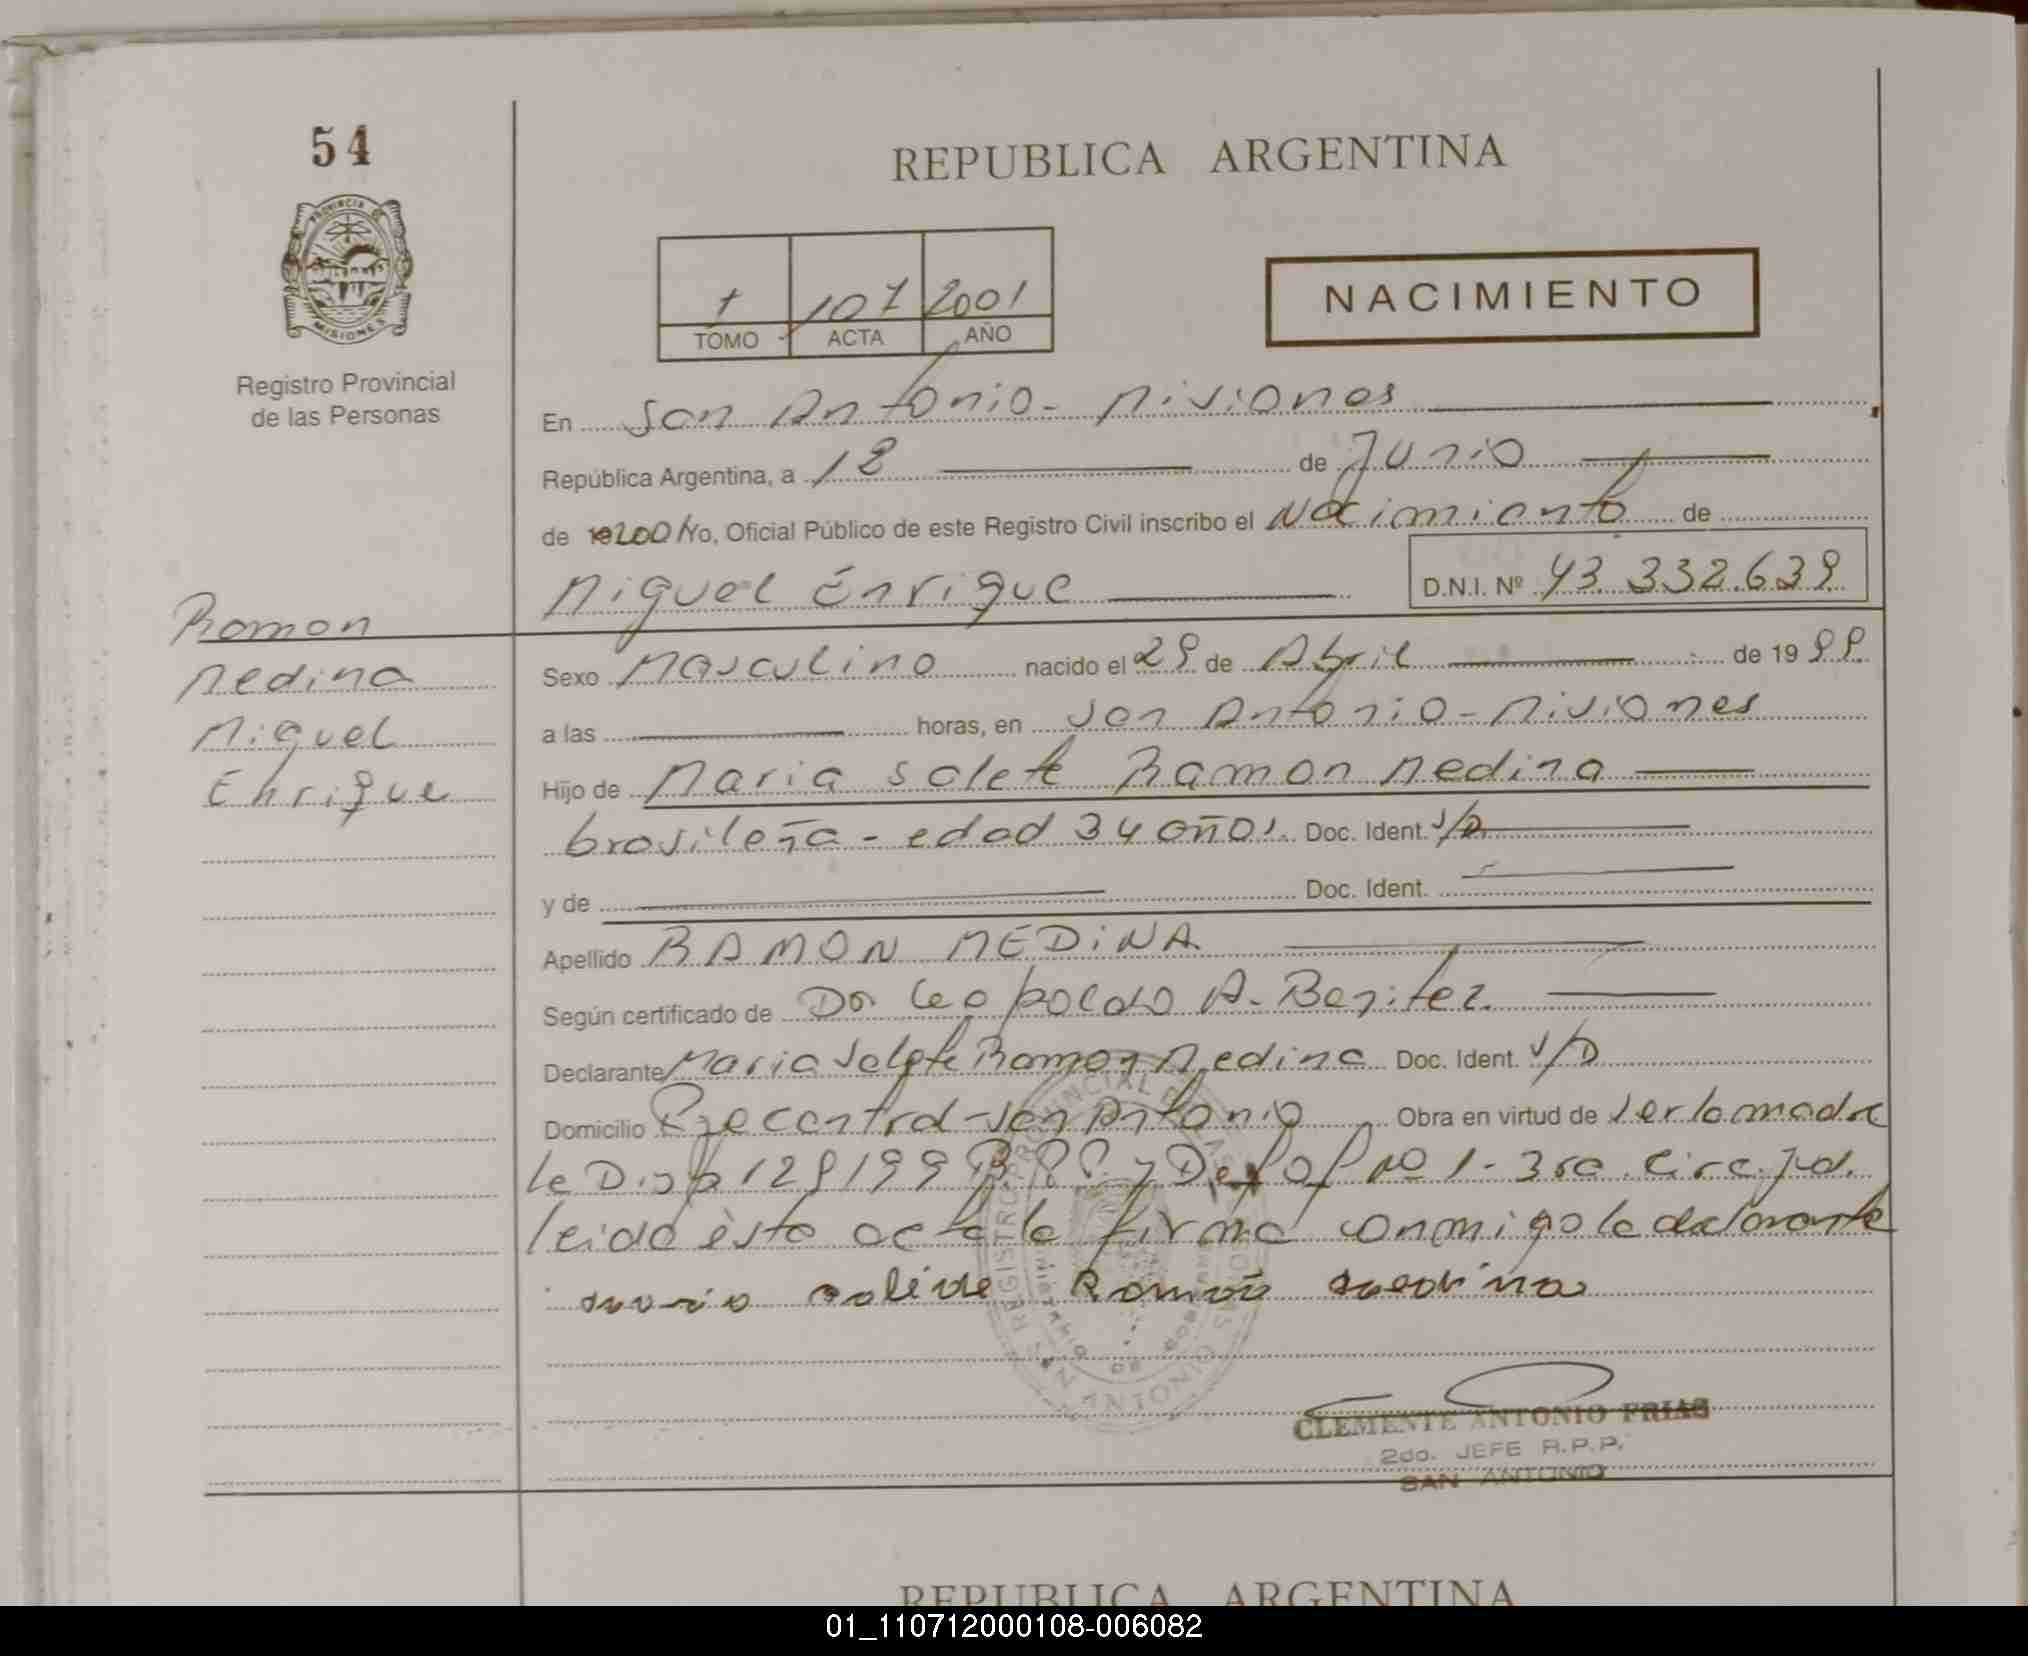 54
REPUBLICA ARGENTINA
PROVINCIA DE
MISIONES
1 107 2001
TOMO ACTA AÑO
NACIMIENTO
Registro Provincial
de las Personas
En San Antonio - Misiones
República Argentina, a 18 de Junio
de 192001 Yo, Oficial Público de este Registro Civil inscribo el Nacimiento de
Miguel Enrique D.N.I. Nº 43.332.639
Ramon
Medina
Miguel
Enrique
Sexo Masculino nacido el 29 de Abril de 1999
a las horas, en San Antonio - Misiones
Hijo de Maria Salete Ramon Medina
brasileña - edad 34 años. Doc. Ident. S/D
y de Doc. Ident.
Apellido RAMON MEDINA
Según certificado de Dr Leopoldo A. Benitez
Declarante Maria Salete Ramon Medina Doc. Ident. S/D
Domicilio Central - San Antonio Obra en virtud de ser la madre
le Disp 129/99 R.P.P. y Def Of Nº 1 - 3ra. Circ. Jud.
leida ésta acta la firma conmigo la declarante
Ramon Medina
REGISTRO PROVINCIAL DE LAS PERSONAS
SAN ANTONIO
MINISTERIO DE GOBIERNO
CLEMENTE ANTONIO FRIAS
2do. JEFE R.P.P.
SAN ANTONIO
REPUBLICA ARGENTINA
01_110712000108-006082